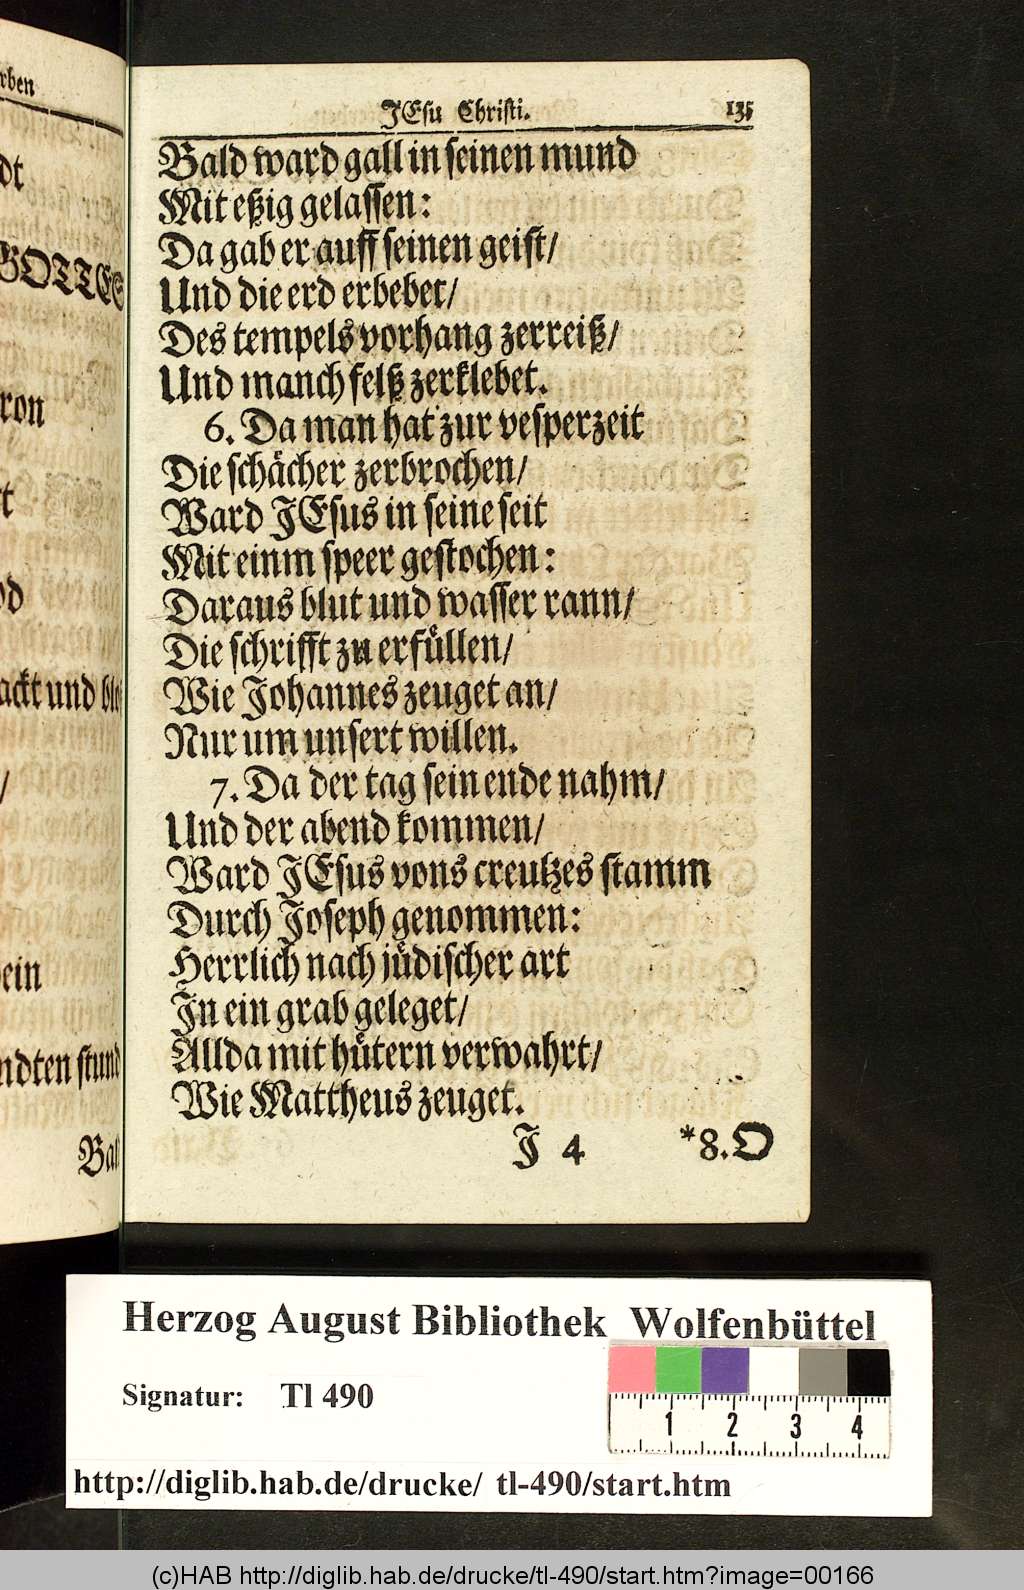 rben
dt
GOTTES
ron
t
od
ackt und blo
/
ein
ndten stund
Bal
JEsu Christi. 135
Bald ward gall in seinen mund
Mit eßig gelassen:
Da gab er auff seinen geist/
Und die erd erbebet/
Des tempels vorhang zerreiß/
Und manch felß zerklebet.
6. Da man hat zur vesperzeit
Die schächer zerbrochen/
Ward JEsus in seine seit
Mit einm speer gestochen:
Daraus blut und wasser rann/
Die schrifft zu erfüllen/
Wie Johannes zeuget an/
Nur um unsert willen.
7. Da der tag sein ende nahm/
Und der abend kommen/
Ward JEsus vons creutzes stamm
Durch Joseph genommen:
Herrlich nach jüdischer art
In ein grab geleget/
Allda mit hütern verwahrt/
Wie Mattheus zeuget.
J 4 *8. O
Herzog August Bibliothek Wolfenbüttel
Signatur: Tl 490
1 2 3 4
http://diglib.hab.de/drucke/ tl-490/start.htm
(c)HAB http://diglib.hab.de/drucke/tl-490/start.htm?image=00166